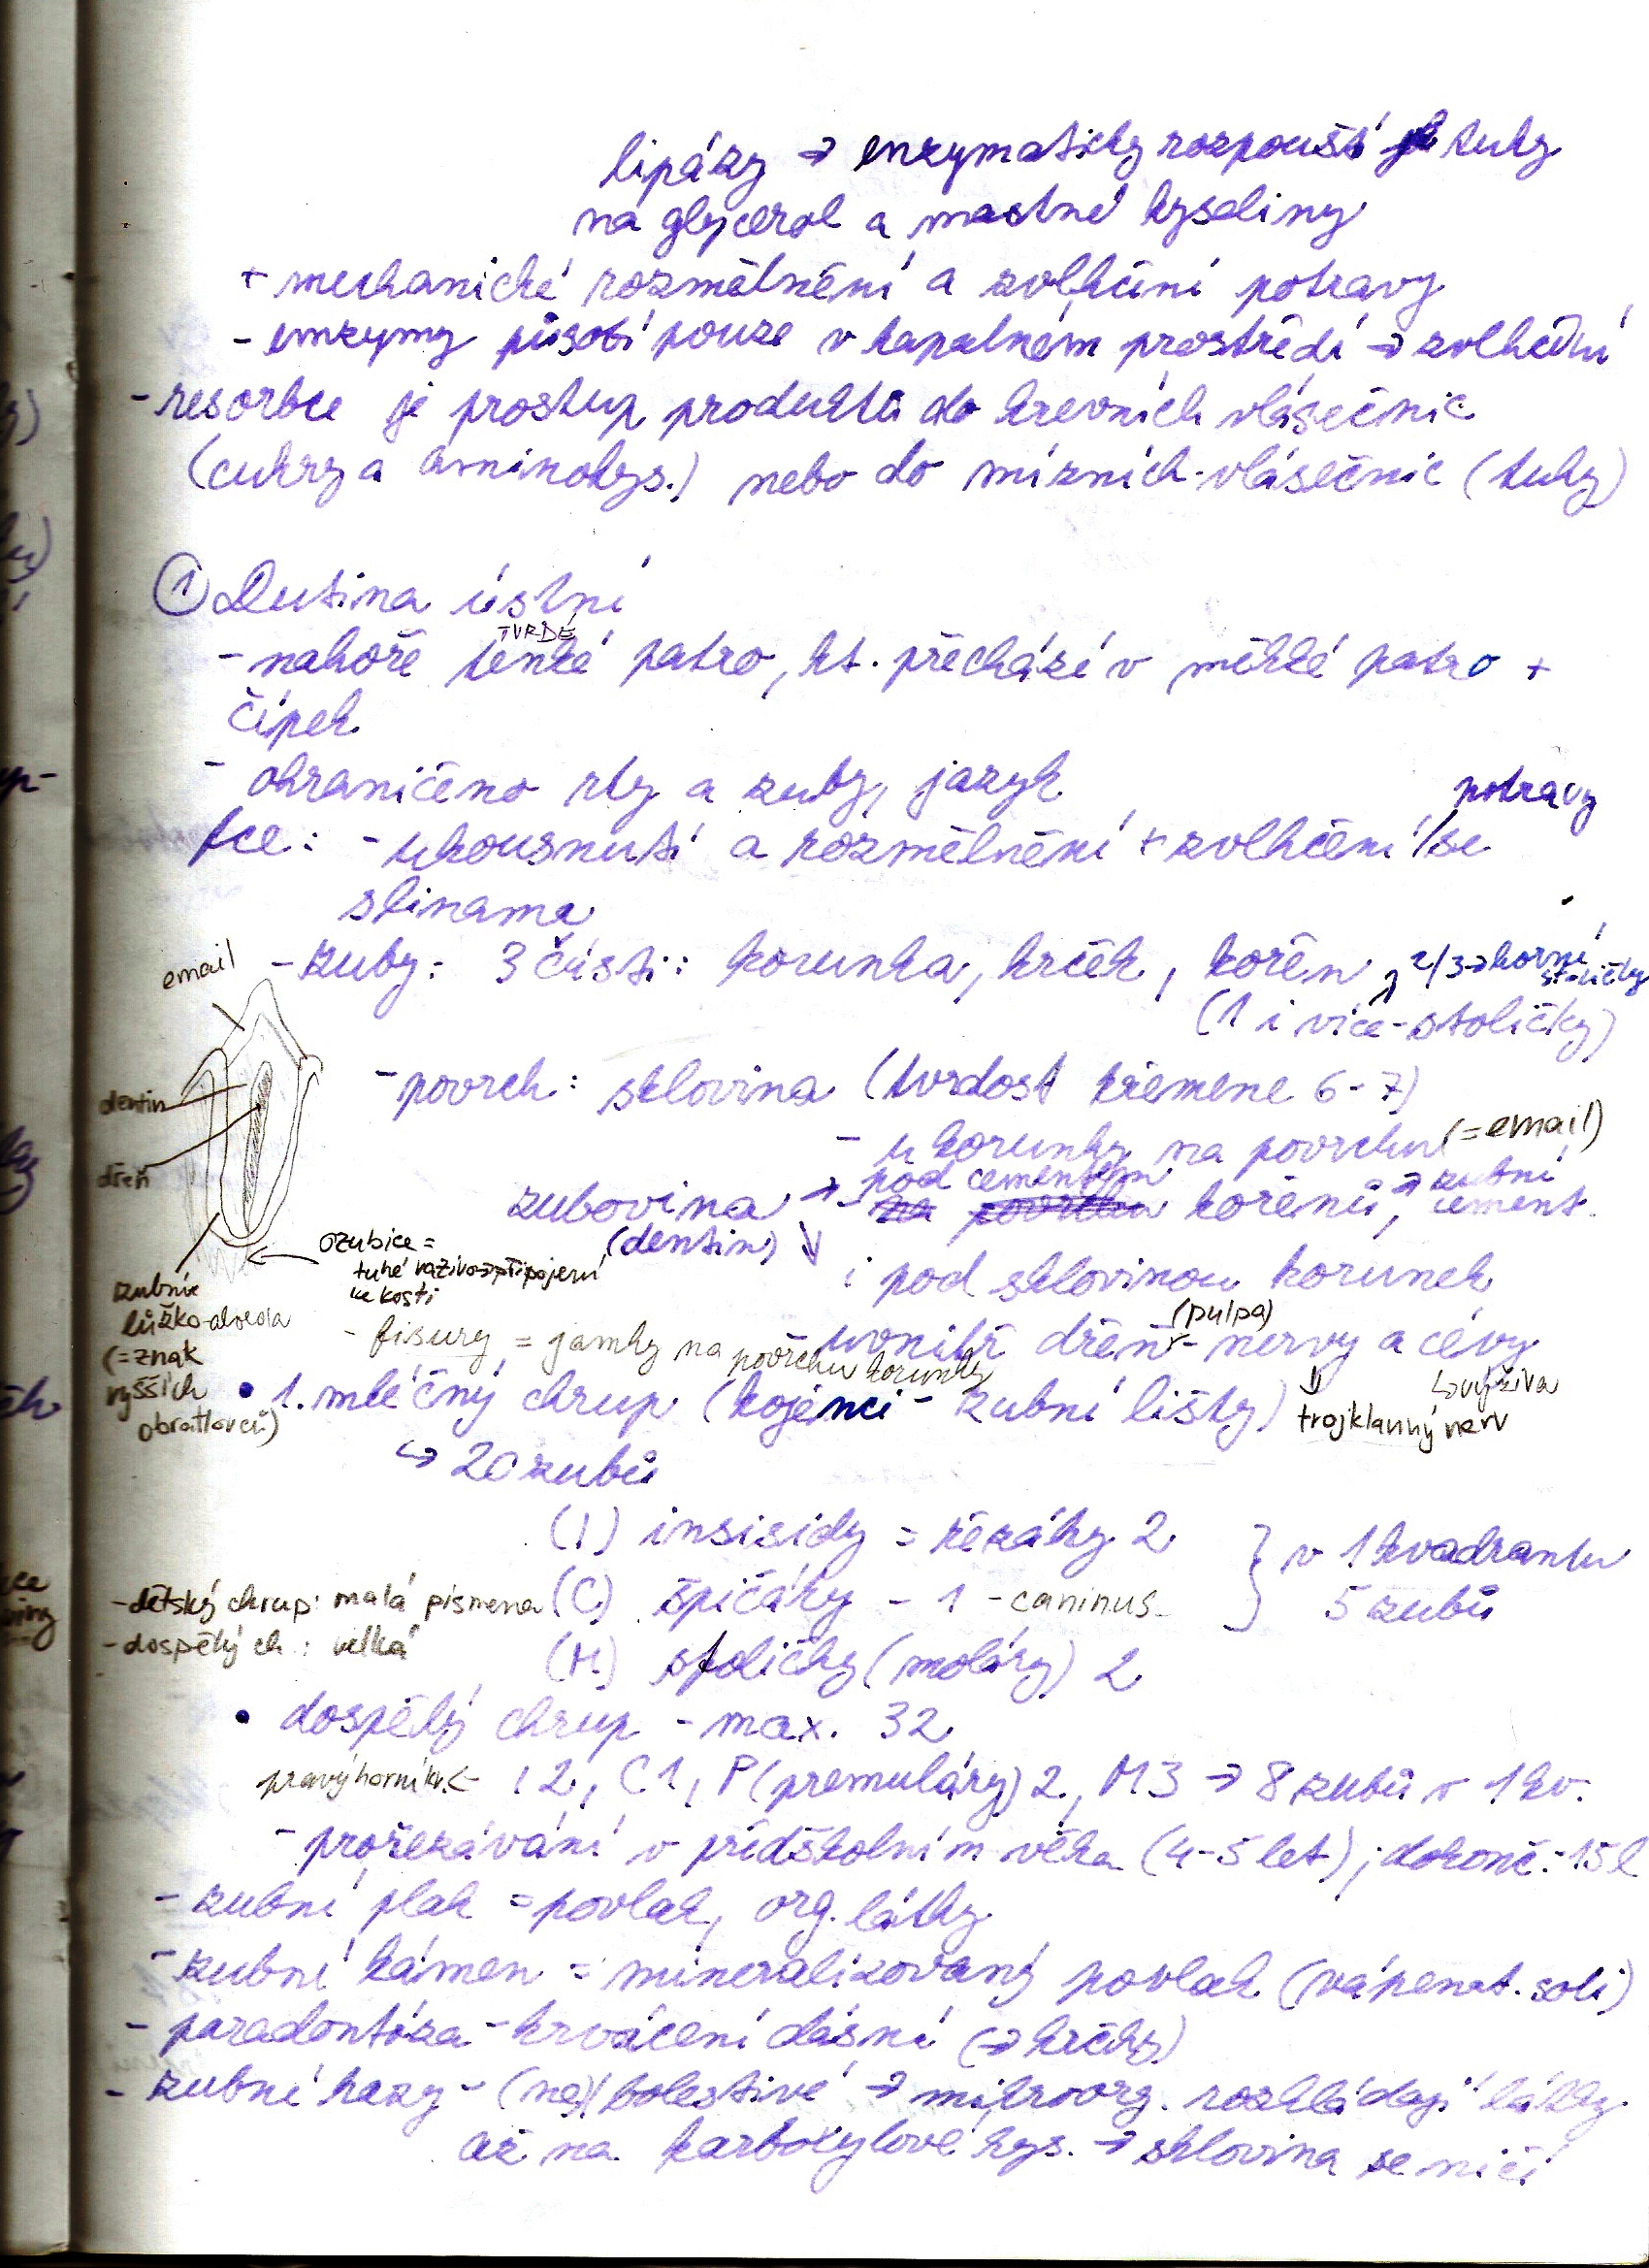 lipázy → enzymaticky rozpouští tuky
na glycerol a mastné kyseliny
+ mechanické rozmělnění a zvlhčení potravy
- enzymy působí pouze v kapalném prostředí → zvlhčení
- resorbce je prostup produktů do krevních vlásečnic
(cukry a aminokys.) nebo do mízních vlásečnic (tuky)
① Dutina ústní
TVRDÉ
- nahoře tenké patro, kt. přechází v měkké patro +
čípek
- ohraničeno rty a zuby, jazyk
potravy
fce: - ukousnutí a rozmělnění + zvlhčení / se
slinama
email
- zuby: 3 části: korunka, krček, kořen, 2/3 → horní
stoličky
(1 i více - stoličky)
- povrch: sklovina (tvrdost křemene 6-7)
dentin
- u korunky na povrchu (= email)
dřeň
pod cementem
zubovina → na povrchu kořenů, → zubní cement
(dentin) ↓
ozubice =
tuhé vazivo → připojení
ke kosti
i pod sklovinou korunek
zubní
lůžko - alveola
(= znak
vyšších
obratlovců)
(pulpa)
uvnitř dřeň - nervy a cévy
- fisury = jamky na povrchu korunky
↳ výživa
↓
trojklanný nerv
• 1. mléčný chrup (kojenci - zubní lišty)
↳ 20 zubů
(I) insisidy = řezáky 2
} v 1 kvadrantu
5 zubů
- dětský chrup: malá písmena
(C) špičáky - 1 - caninus
- dospělý ch.: velká
(M) stoličky (moláry) 2
• dospělý chrup - max. 32
pravý horní kv. ← I2, C1, P (premuláry) 2, M3 → 8 zubů v 1 kv.
- prořezávání v předškolním věku (4-5 let); dokonč. - 15 l
- zubní plak = povlak, org. látky
- zubní kámen = mineralizovaný povlak (vápenat. soli)
- paradontóza - krvácení dásní (→ krčky)
- zubní kazy - (ne) bolestivé → mikroorg. rozkládají látky
až na karboxylové kys. → sklovina se ničí